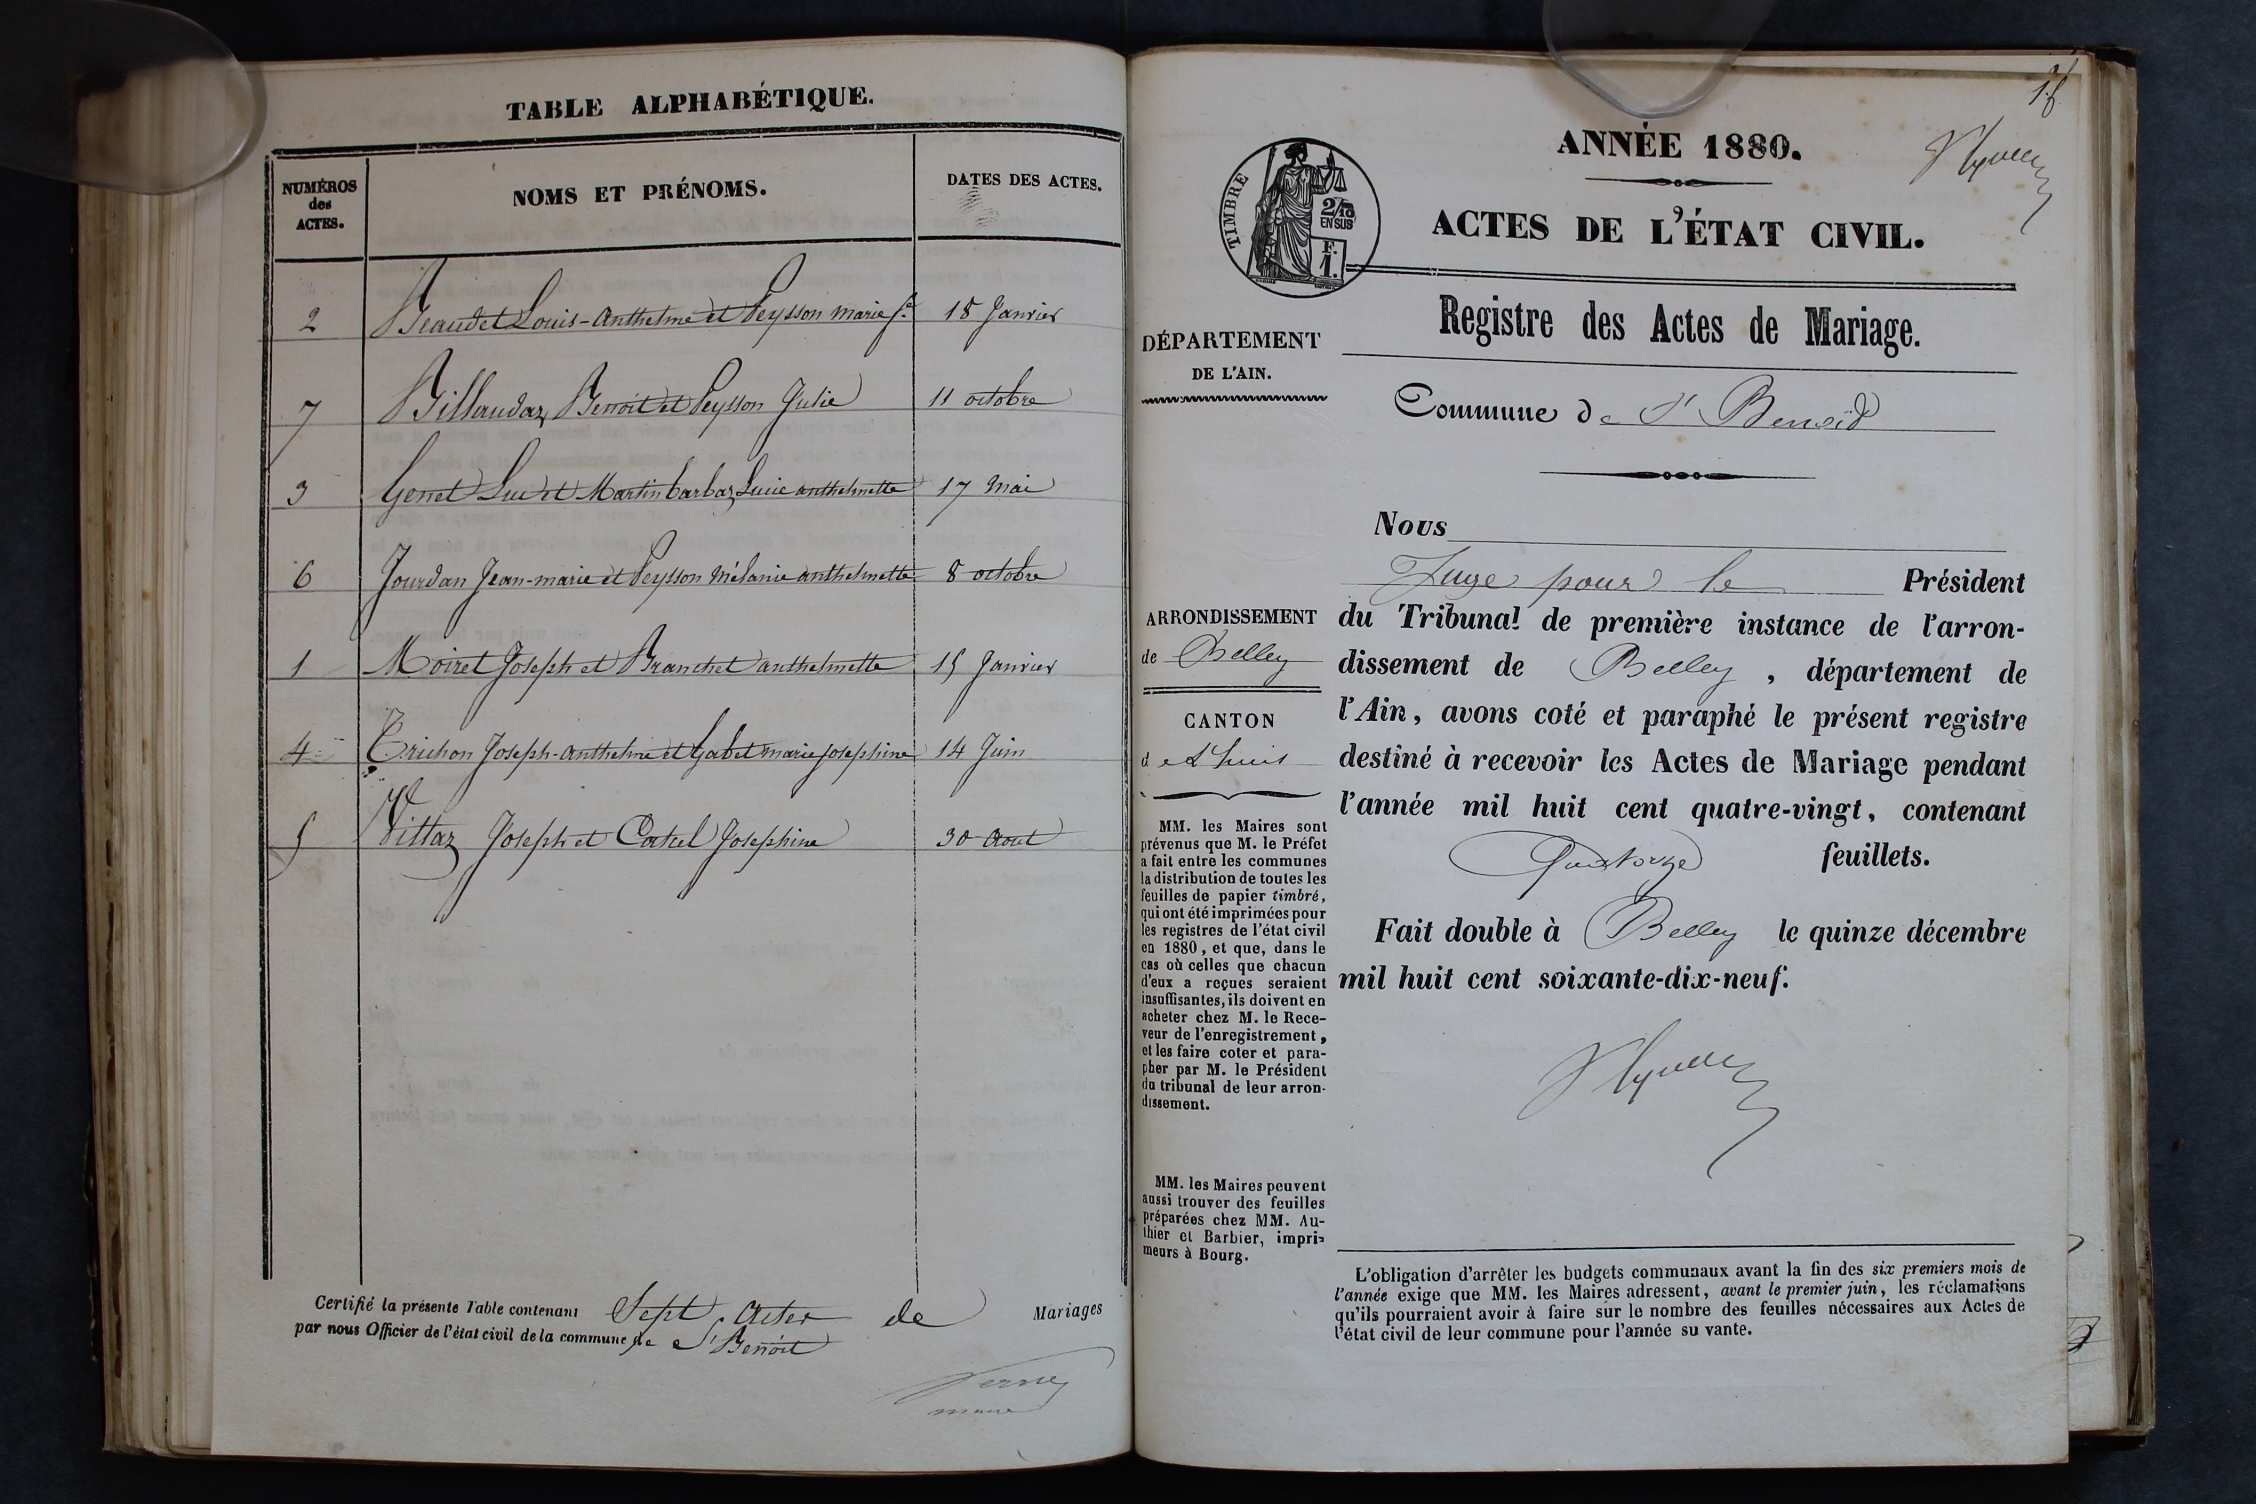 TABLE ALPHABÉTIQUE.
NUMÉROS des ACTES. NOMS ET PRÉNOMS. DATES DES ACTES.
2 Beaudet Louis-Anthelme et Peysson marie 18 Janvier
7 Billaudaz Benoit et Peysson Julie 11 octobre
3 Genet Luc et Martin barbaz Lucie anthelmette 17 Mai
6 Jourdan Jean-marie et Peysson Mélanie anthelmette 8 octobre
1 Moiret Joseph et Branchet anthelmette 15 Janvier
4 Trichon Joseph-anthelme et Gabet marie josephine 14 Juin
5 Vittaz Joseph et Joséphine 30 Aout
Certifié la présente Table contenant Sept actes de Mariages
par nous Officier de l'état civil de la commune de St Benoit
maire
18
ANNÉE 1880.
TIMBRE
2/10
EN SUS
F.
1.
ACTES DE L'ÉTAT CIVIL.
Registre des Actes de Mariage.
DÉPARTEMENT
DE L'AIN.
Commune de St Benoit
ARRONDISSEMENT
de Belley
CANTON
de Lhuis
MM. les Maires sont
prévenus que M. le Préfet
a fait entre les communes
la distribution de toutes les
feuilles de papier timbré,
qui ont été imprimées pour
les registres de l'état civil
en 1880, et que, dans le
cas où celles que chacun
d'eux a reçues seraient
insuffisantes, ils doivent en
acheter chez M. le Rece-
veur de l'enregistrement,
et les faire coter et para-
pher par M. le Président
du tribunal de leur arron-
dissement.
MM. les Maires peuvent
aussi trouver des feuilles
préparées chez MM. Au-
thier et Barbier, impri-
meurs à Bourg.
Nous
Juge pour le Président
du Tribunal de première instance de l'arron-
dissement de Belley, département de
l'Ain, avons coté et paraphé le présent registre
destiné à recevoir les Actes de Mariage pendant
l'année mil huit cent quatre-vingt, contenant
Quatorze feuillets.
Fait double à Belley le quinze décembre
mil huit cent soixante-dix-neuf.
L'obligation d'arrêter les budgets communaux avant la fin des six premiers mois de
l'année exige que MM. les Maires adressent, avant le premier juin, les réclamations
qu'ils pourraient avoir à faire sur le nombre des feuilles nécessaires aux Actes de
l'état civil de leur commune pour l'année su vante.